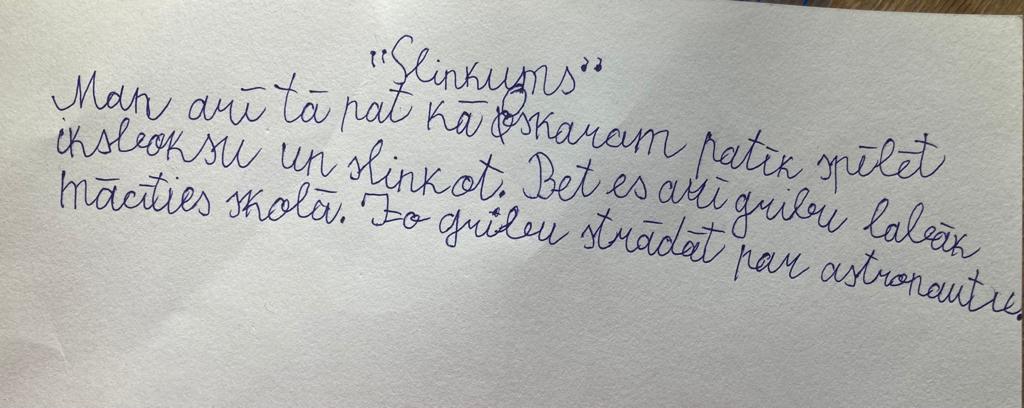 "Slinkums"
Man arī tā pat kā Oskaram patīk spīlēt
iksboksu un slinkot. Bet es arī gribu labāk
mācīties skolā. Jo gribu strādāt par astronautu.